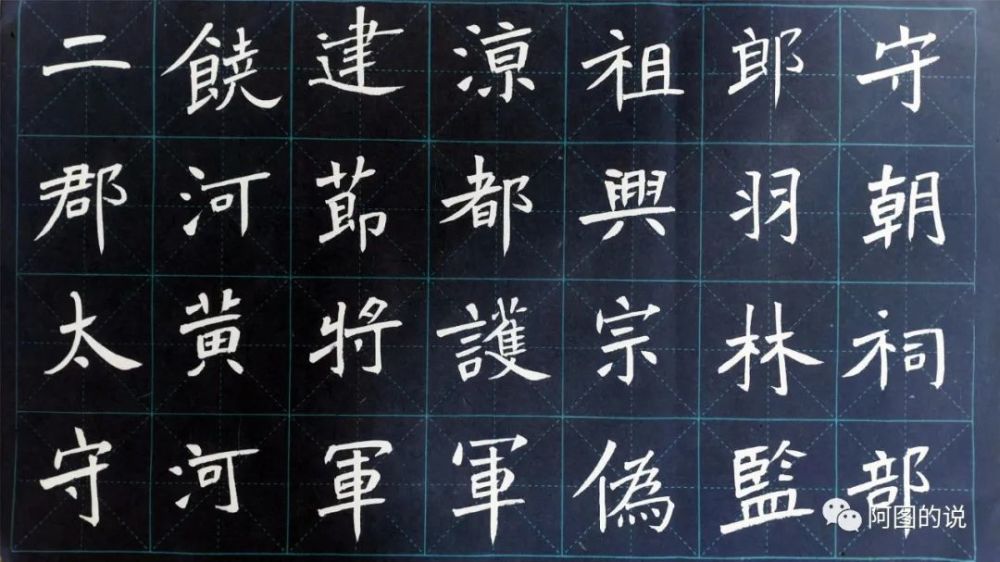 守朝祠部
郎羽林監
祖興宗偽
涼都護軍
建莭将軍
饒河黄河
二郡太守
阿图的说